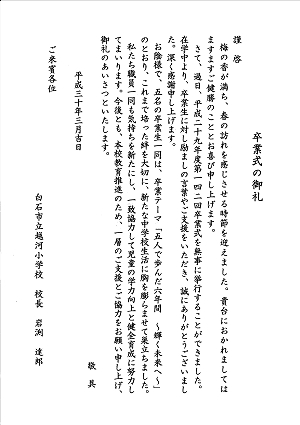 卒業式の御礼
謹啓
梅の香が満ち、春の訪れを感じさせる時節を迎えました。貴台におかれましては
ますますご健勝のこととお喜び申し上げます。
さて、過日、平成二十九年度第一四二回卒業式を無事に挙行することができました。
在学中より、卒業生に対し励ましの言葉やご支援をいただき、誠にありがとうございまし
た。深く感謝申し上げます。
お陰様で、五名の卒業生一同は、卒業テーマ「五人で歩んだ六年間 ～輝く未来へ～」
のとおり、これまで培った絆を大切に、新たな中学校生活に胸を膨らませて巣立ちました。
私たち職員一同も気持ちを新たにし、一致協力して児童の学力向上と健全育成に努力し
てまいります。今後とも、本校教育推進のため、一層のご支援とご協力をお願い申し上げ、
御礼のあいさつといたします。
敬具
平成三十年三月吉日
白石市立越河小学校 校長 岩渕 達郎
ご来賓各位